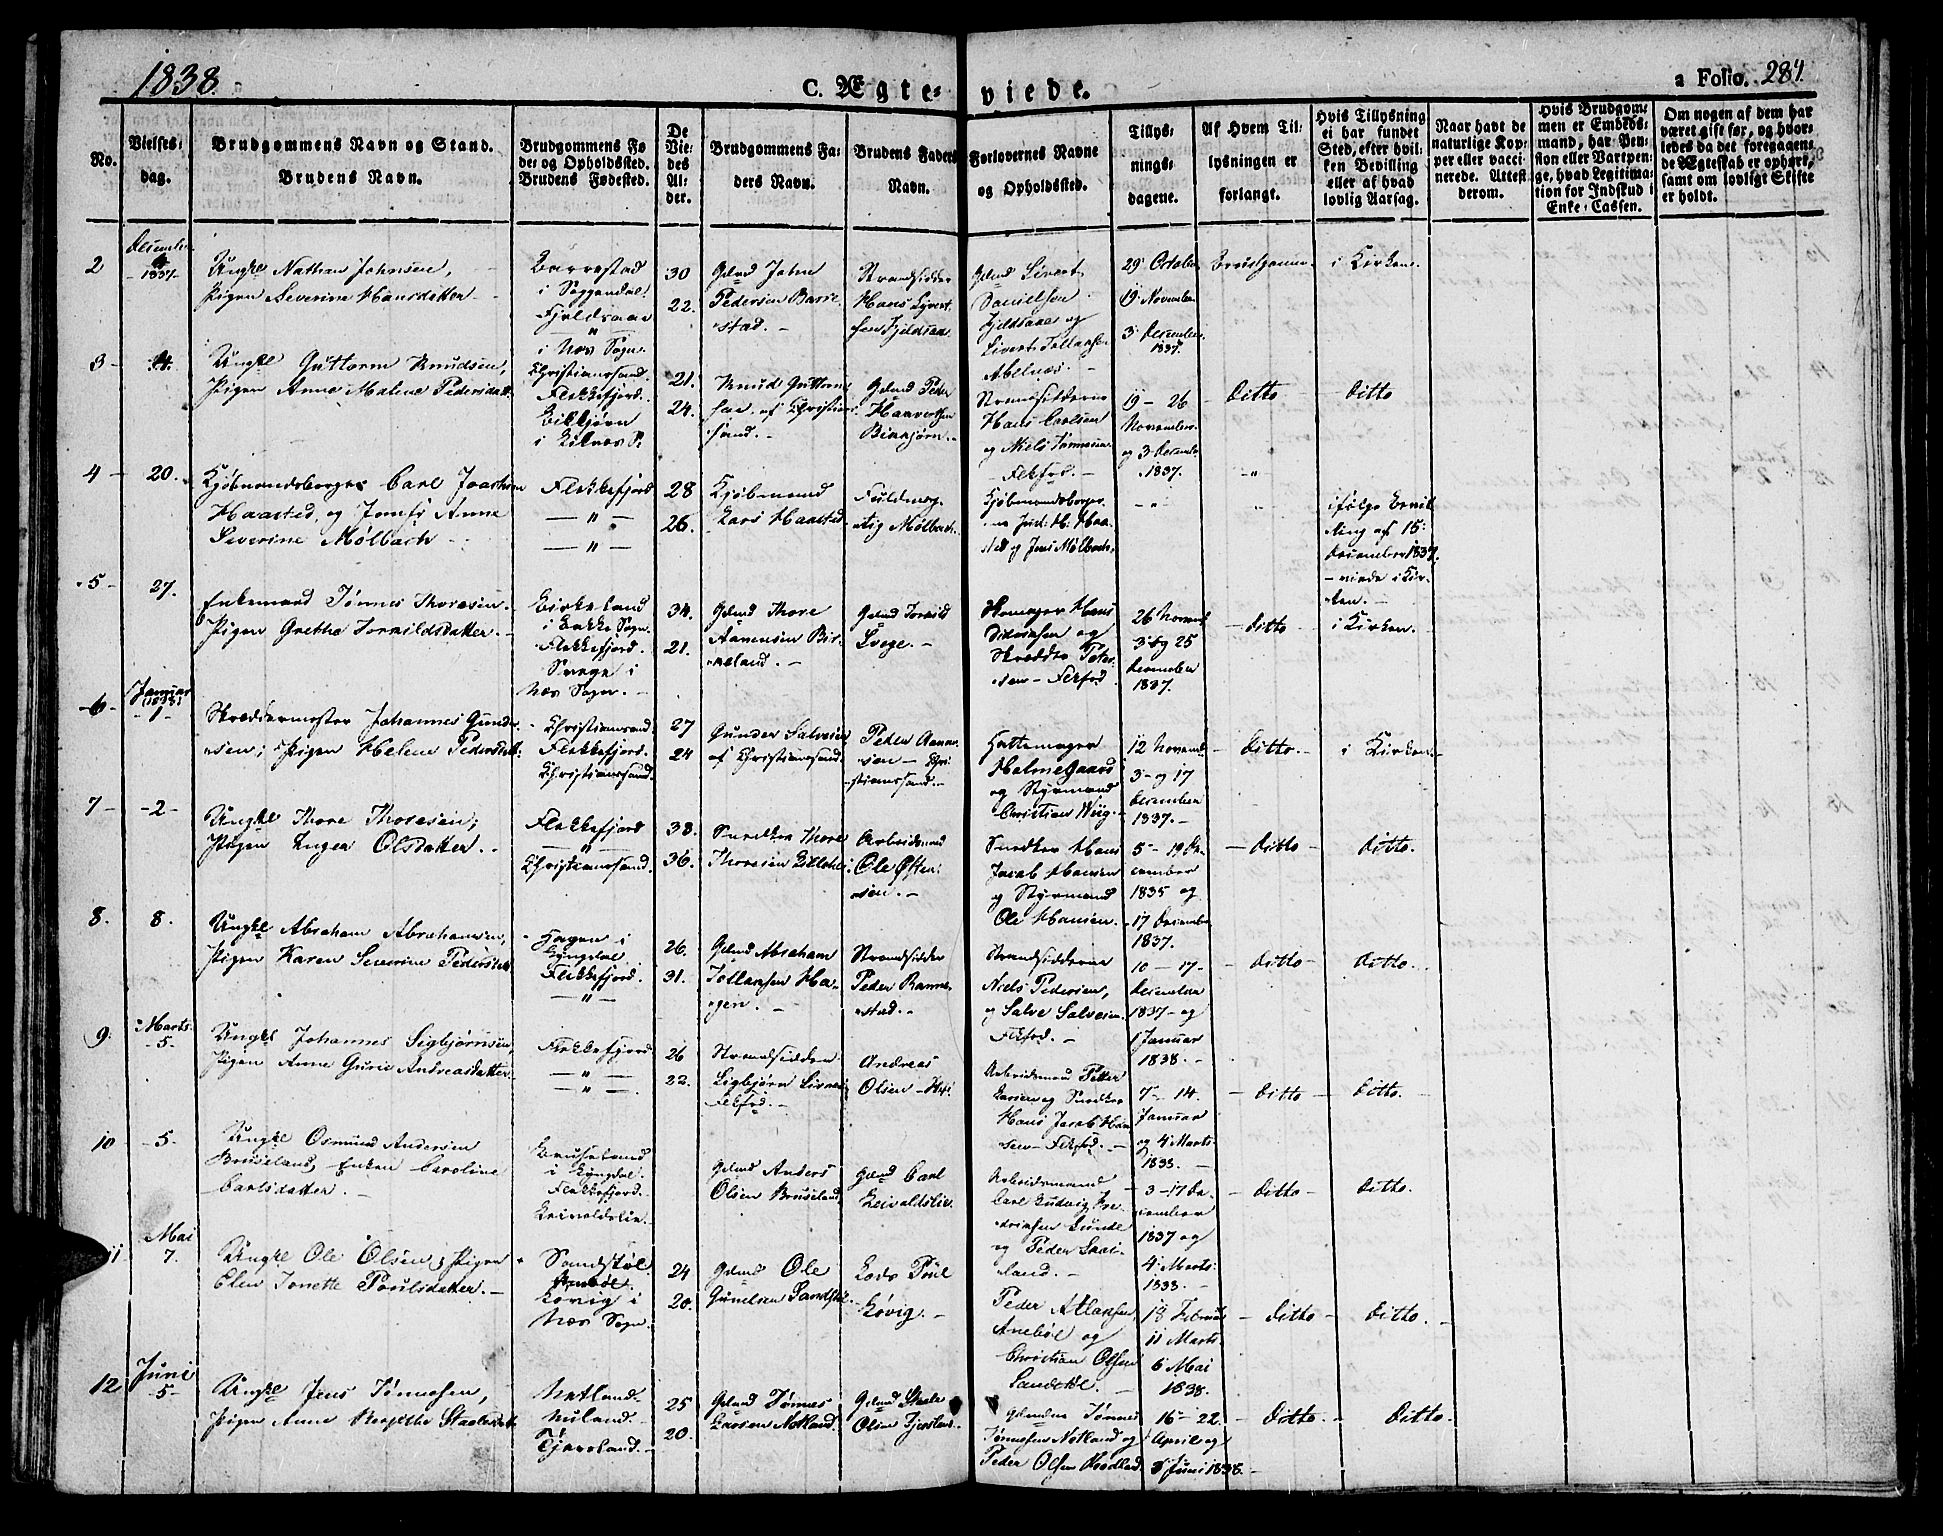 1838.
C. Ægte- viede.
a Folio. 284.
No.
Vielses-
dag.
Brudgommens Navn og Stand.
Brudens Navn.
Brudgommens Fø
de- og Opholdssted.
Brudens Fødested.
De
Vie-
des
Al-
der.
Brudgommens Fa-
ders Navn.
Brudens Faders
Navn.
Forlovernes Navne
og Opholdssted.
Tillys-
nings-
dagene.
Af Hvem Til-
lysningen er
forlangt.
Hvis Tillysning
ei har fundet
Sted, efter hvil-
ken Bevilling
eller af hvad
lovlig Aarsag.
Naar havt de
naturlige Kop-
per eller vacci-
nerede. Attest
derom.
Hvis Brudgom-
men er Embeds-
mand, har Pen-
sion eller Vartpen-
ge, hvad Legitima-
tion for Indskud i
Enke-Cassen.
Om nogen af dem har
været gift før, og hvor-
ledes da det foregaaen-
de Ægteskab er ophørt,
samt om lovligt Skifte
er holdt.
2
December
1837.
Ungkl Nathan Johnsen,
Pigen Severine Hansdatter
Barrestad
i Soggendal.
Fjeldsaae
i Næs Sogn.
30
22.
Gdmd John
Pedersen Barre-
stad.
Strandsidder
Hans Syvert-
sen Fjeldsaae
Gdmd Sivert
Danielsen
Fjeldsaae og
Sivert Tollaksen
Abelnæs.
29 October
19 November
3 December
1837.
Brudgommen
i Kirken.
3
Ungkl Guttorm Knudsen,
Pigen Anne Malene Pedersdatt.
Christianssand.
Flekkefjord.
21.
24.
Knud Guttorm-
sen af Christian-
sand.
Gdmd Peder
Haavorsen
Strandsidderne
Hans Carlsen
og Niels Tønnesen
Flekfjd.
19 - 26
November
og 3 Decemb.
1837.
Ditto
Ditto
4
20.
Kjøbmandsborger Carl Joachim
Haasted, og Jomfr Anne
Severine Mølbach
Flekkefjord
28
26.
Kjøbmand
Lars Haasted
Fuldmæg-
tig Mølbach.
Kjøbmandsborger-
sted og Jens Mølbach.
ifølge Bevil-
ling af 15
December 1837.
viede i Kir-
ken.
5
27.
Enkemand Tønnes Thoresen.
Pigen Grethe Torkildsdatter.
Birkeland
i Bakke Sogn.
Flekkefjord.
Svege i
Næs Sogn.
34.
21.
Gdmd Thore
Aanensen Bir-
keland.
Gdmd Torkild
Svege.
Skomager Hans
Didriksen og
Skrædder Peter-
sen Flekfjd.
26 Novemb
3 og 25
December
1837.
Ditto
i Kirken.
6
Januar
1838
1
Skræddermester Johannes Gunder-
sen; Pigen Helene Pedersdatt.
Christianssand.
Flekkefjord.
Christianssand.
27
24
Gunder Salvesen
af Christianssand.
Peder Aanen-
sen - Chri-
stianssand.
Hattemager
Holmegaard
og Styrmand
Christian Wiig.
12 Novemb
3 og 17
December
1837.
Ditto.
i Kirken
7
2
Ungkl Thore Thoresen;
Pigen Inger Olsdatter.
Flekkefjord
Christianssand.
38.
36.
Snedker Thore
Thoresen
Arbeidsmd
Ole Østen-
sen.
Snedker Hans
Jacob Hansen
og Styrmand
Ole Hansen.
5 - 19 De-
cember
1835 og
17 December
1837.
Ditto
Ditto.
8.
8.
Ungkl Abraham Abrahamsen,
Pigen Karen Severine Pedersdatt.
Hagen i
Lyngdal.
Flekkefjord.
26.
31.
Gdmd Abraham
Tollaksen Ha-
gen.
Strandsidder
Peder Ranne-
stad.
Strandsidderne
Niels Pedersen,
og Salve Salvesen
Flekfjd.
10 - 17
December
1837 og
1 Januar
1838.
Ditto
Ditto.
9.
Marts
5
Ungkl Johannes Sigbjørnsen,
Pigen Anne Gurie Andreasdatter.
Flekkefjord
26
22.
Strandsidder
Sigbjørn
Flekfjd.
Andreas
Olsen
Arbeidsmd Peter
Larsen og Snedker
Hans Jacob Han-
sen Flekfjd.
7 - 14.
Januar
og 4 Marts
1838.
Ditto
Ditto.
10
5.
Ungkl Osmund Andersen
Bruseland, Enken Caroline
Carlsdatter.
Bruseland
i Lyngdal.
Flekkefjord.
Leivoldslie.
Gdmd Anders
Olsen Bruseland
Gdmd Carl
Leivoldslie.
Arbeidsmand
Carl Ludvig Fre-
driksen Lunde
og Peder
land.
3 - 17 De-
cember
1837 og
4 Marts
1838.
Ditto
Ditto.
11
Mai
7.
Ungkl Ole Olsen; Pigen
Elen Jonette Poulsdatter.
Sandstøl
Løvig i
Næs Sogn.
24
20.
Gdmd Ole
Gunelsen Sandstøl.
Lods Poul
Løvig.
Peder Atlaksen
Anebøl og
Christian Olsen
Sandstøl.
18 Februar
11 Marts
6 Mai
1838.
Ditto
Ditto.
12
Juni
5
Ungkl Jens Tønnesen,
Pigen Anne Bergitte Staalesdatt.
Netland
Nuland.
Tjersland.
25
20.
Gdmd Tønnes
Larsen Netland.
Gdmd Staale
Olsen Tjersland.
Gdmdne Tønnes
Tønnesen Netland og
Peder Olsen
16 - 22
April og
5 Juni 1838.
Ditto.
Ditto.